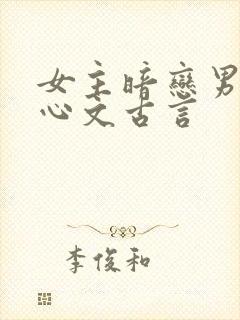 女主暗戀男
心文古言
李俊和